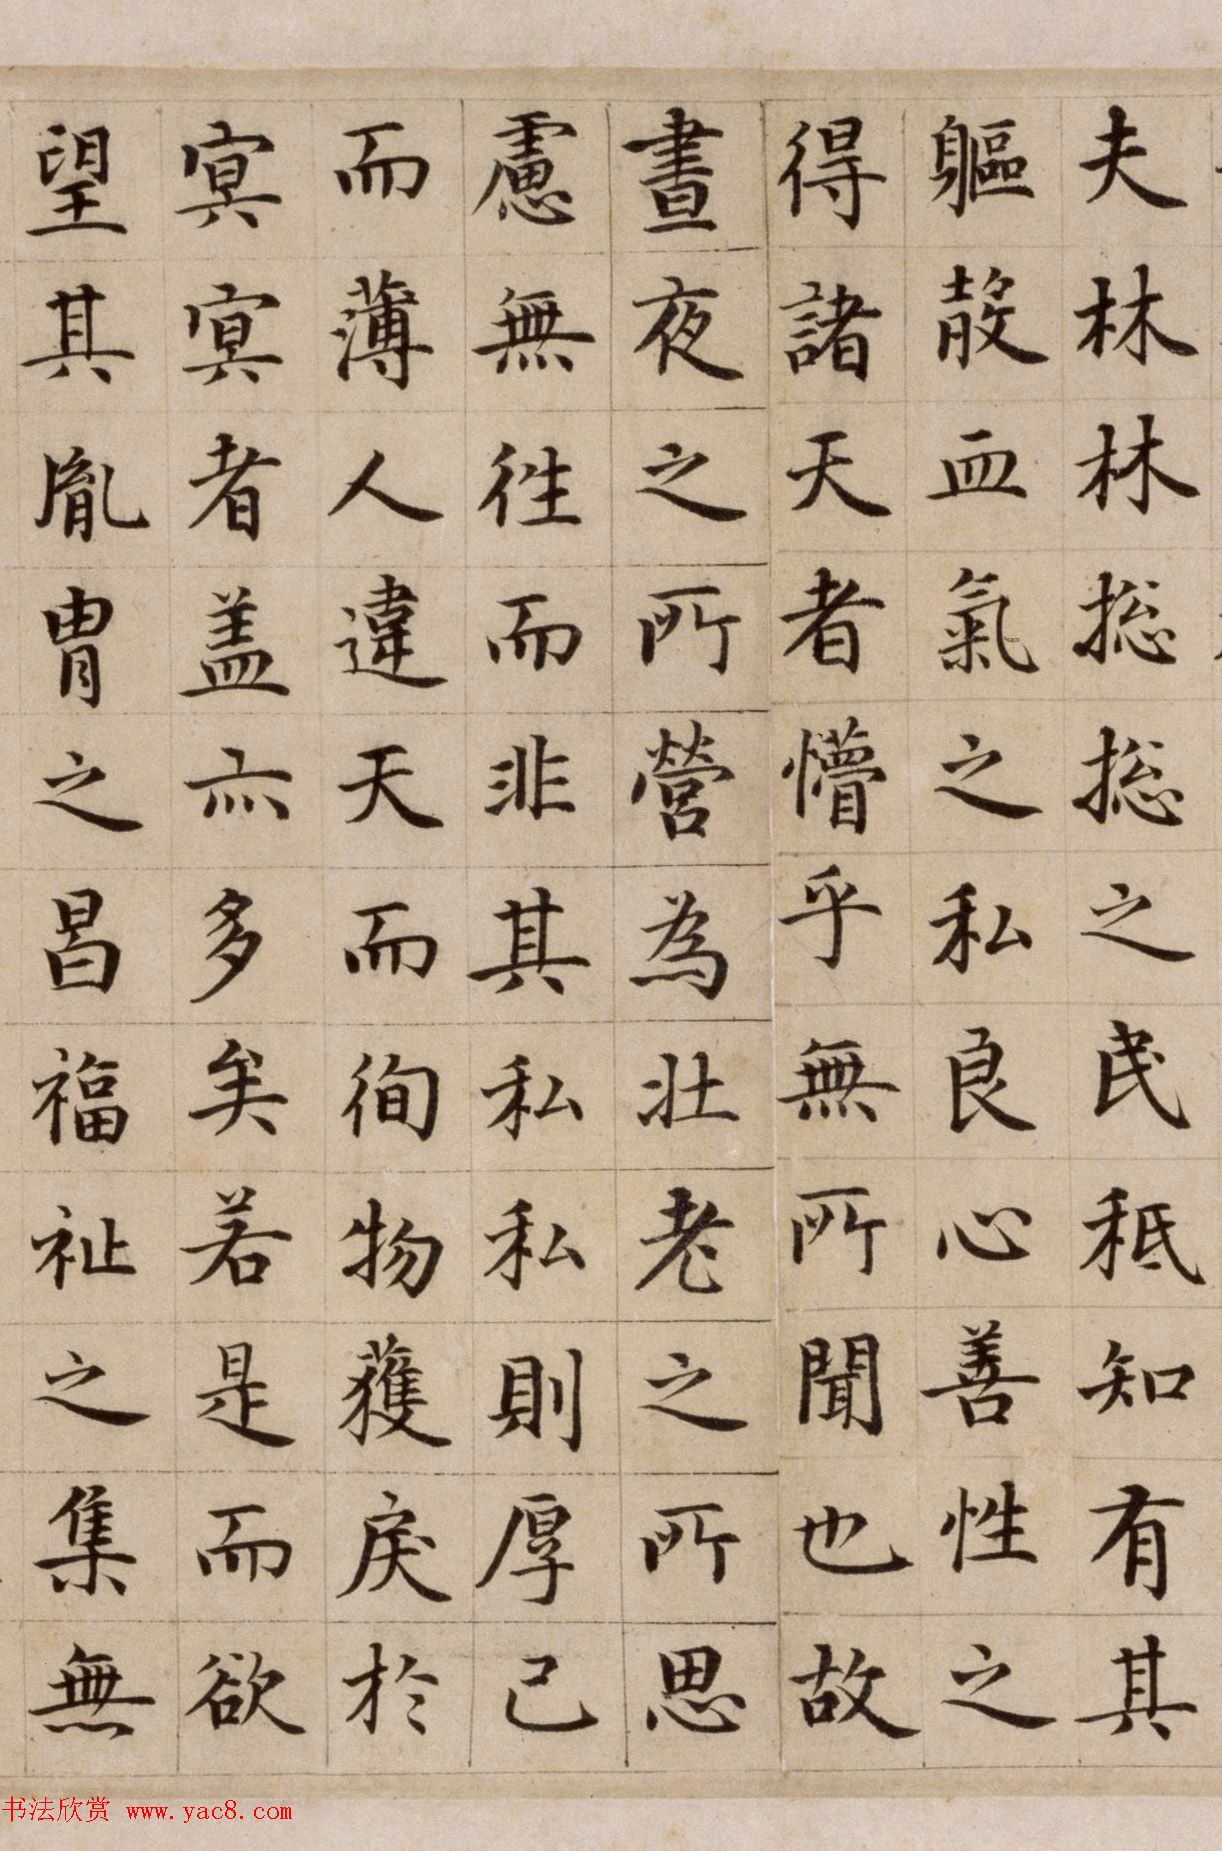 夫林林揔揔之民秪知有其
軀殽血氣之私良心善性之
得諸天者懵乎無所聞也故
晝夜之所營為壯老之所思
慮無徃而非其私私則厚己
而薄人違天而徇物獲戾於
冥冥者盖亦多矣若是而欲
望其胤胄之昌福祉之集無
书法欣赏 www.yac8.com